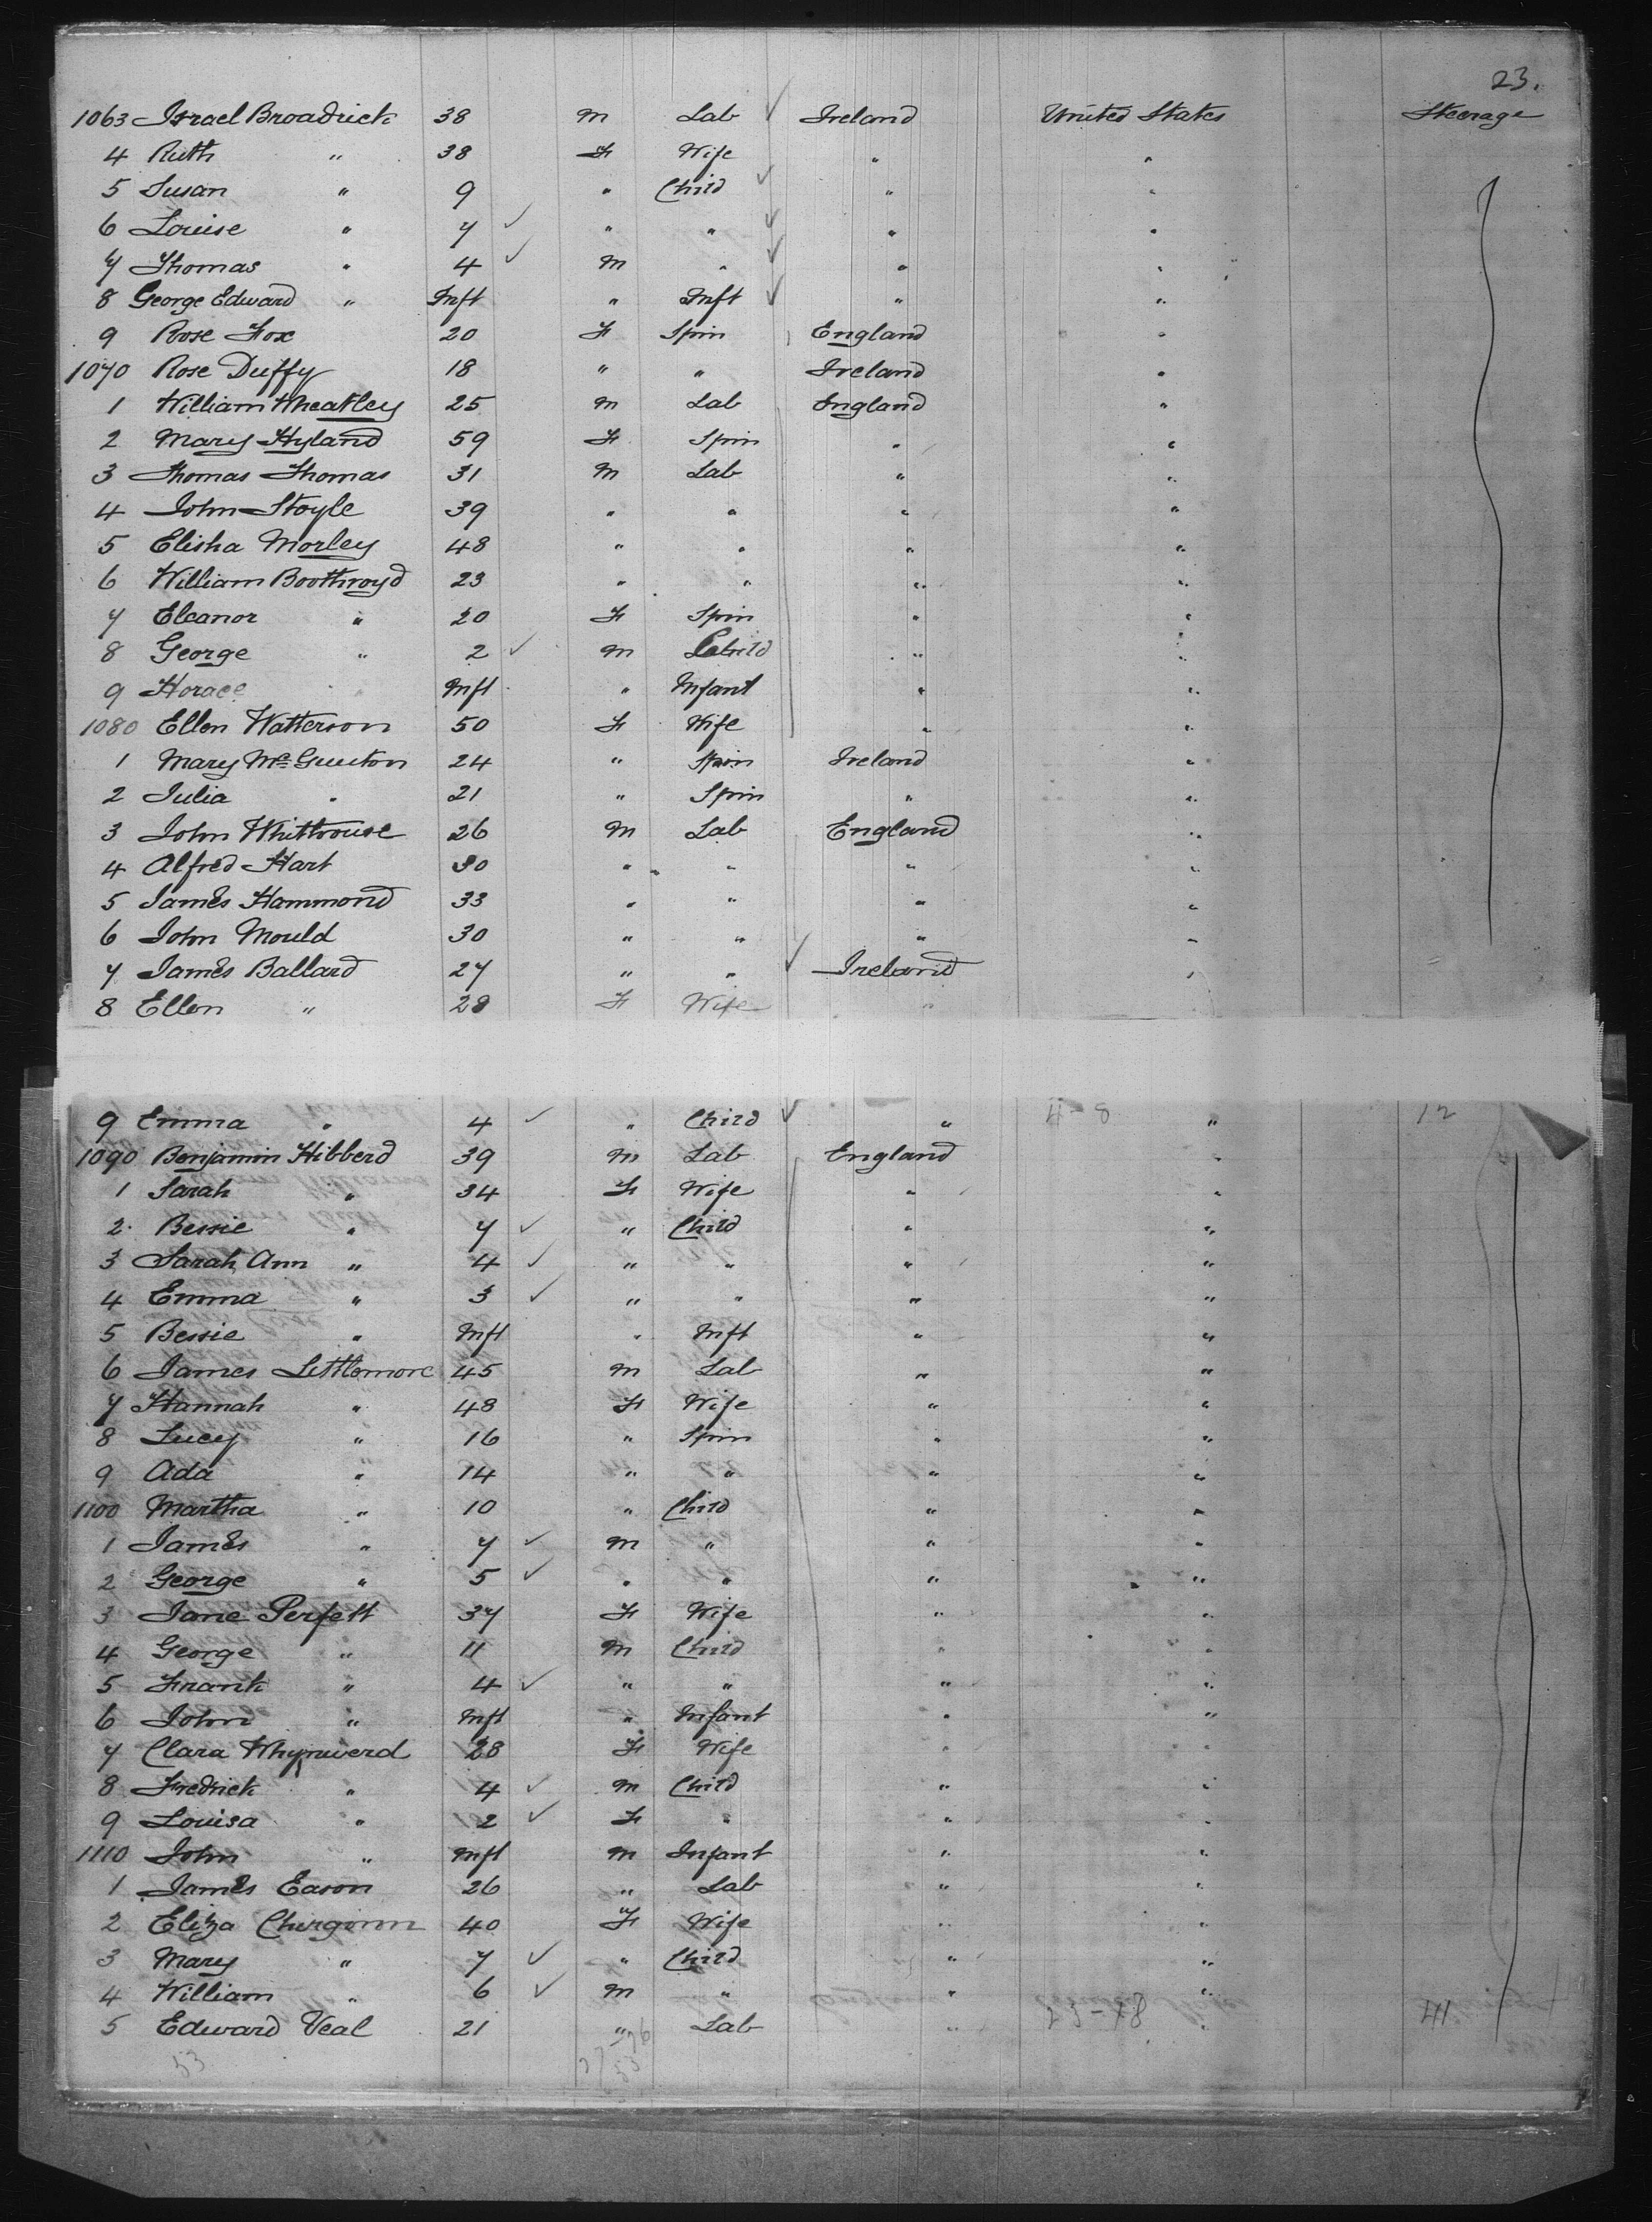 23.
1063 Israel Broadrick 38 M Lab ✓ Ireland United States Steerage
4 Ruth " 38 F Wife " "
5 Susan " 9 " Child ✓ " "
6 Louise " 7 ✓ " " ✓ " "
7 Thomas " 4 ✓ M " ✓ " "
8 George Edward " Inft " Inft ✓ " "
9 Rose Fox 20 F Spin England "
1070 Rose Duffy 18 " " Ireland "
1 William Wheatley 25 M Lab England "
2 Mary Hyland 59 F Spin " "
3 Thomas Thomas 31 M Lab " "
4 John Stoyle 39 " " " "
5 Elisha Morley 48 " " " "
6 William Boothroyd 23 " " " "
7 Eleanor " 20 F Spin " "
8 George " 2 ✓ M Child " "
9 Horace " Inft " Infant " "
1080 Ellen Watterson 50 F Wife " "
1 Mary Mc 24 " Spin Ireland "
2 Julia " 21 " Spin " "
3 John Whithouse 26 M Lab England "
4 Alfred Hart 30 " " " "
5 James Hammond 33 " " " "
6 John Mould 30 " " " "
7 James Ballard 27 " " ✓ Ireland "
8 Ellen " 28 F Wife "
9 Emma " 4 ✓ " Child ✓ " 4-8 " 12
1090 Benjamin Hibberd 39 M Lab England "
1 Sarah " 34 F Wife " "
2 Bessie " 7 ✓ " Child " "
3 Sarah Ann " 4 ✓ " " " "
4 Emma " 3 ✓ " " " "
5 Bessie " Inft " Inft " "
6 James Littlemore 45 M Lab " "
7 Hannah " 48 F Wife " "
8 Lucy " 16 " Spin " "
9 Ada " 14 " " " "
1100 Martha " 10 " Child " "
1 James " 7 ✓ M " " "
2 George " 5 ✓ " " " "
3 Jane Perfett 37 F Wife " "
4 George " 11 M Child " "
5 Frank " 4 ✓ " " " "
6 John " Inft " Infant " "
7 Clara 28 F Wife " "
8 Fredrick " 4 ✓ M Child " "
9 Louisa " 2 ✓ F " " "
1110 John " Inft M Infant " "
1 James Eason 26 " Lab " "
2 Eliza 40 F Wife " "
3 Mary " 7 ✓ " Child " "
4 William " 6 ✓ M " " "
5 Edward Veal 21 " Lab " 23-18 " 41
53